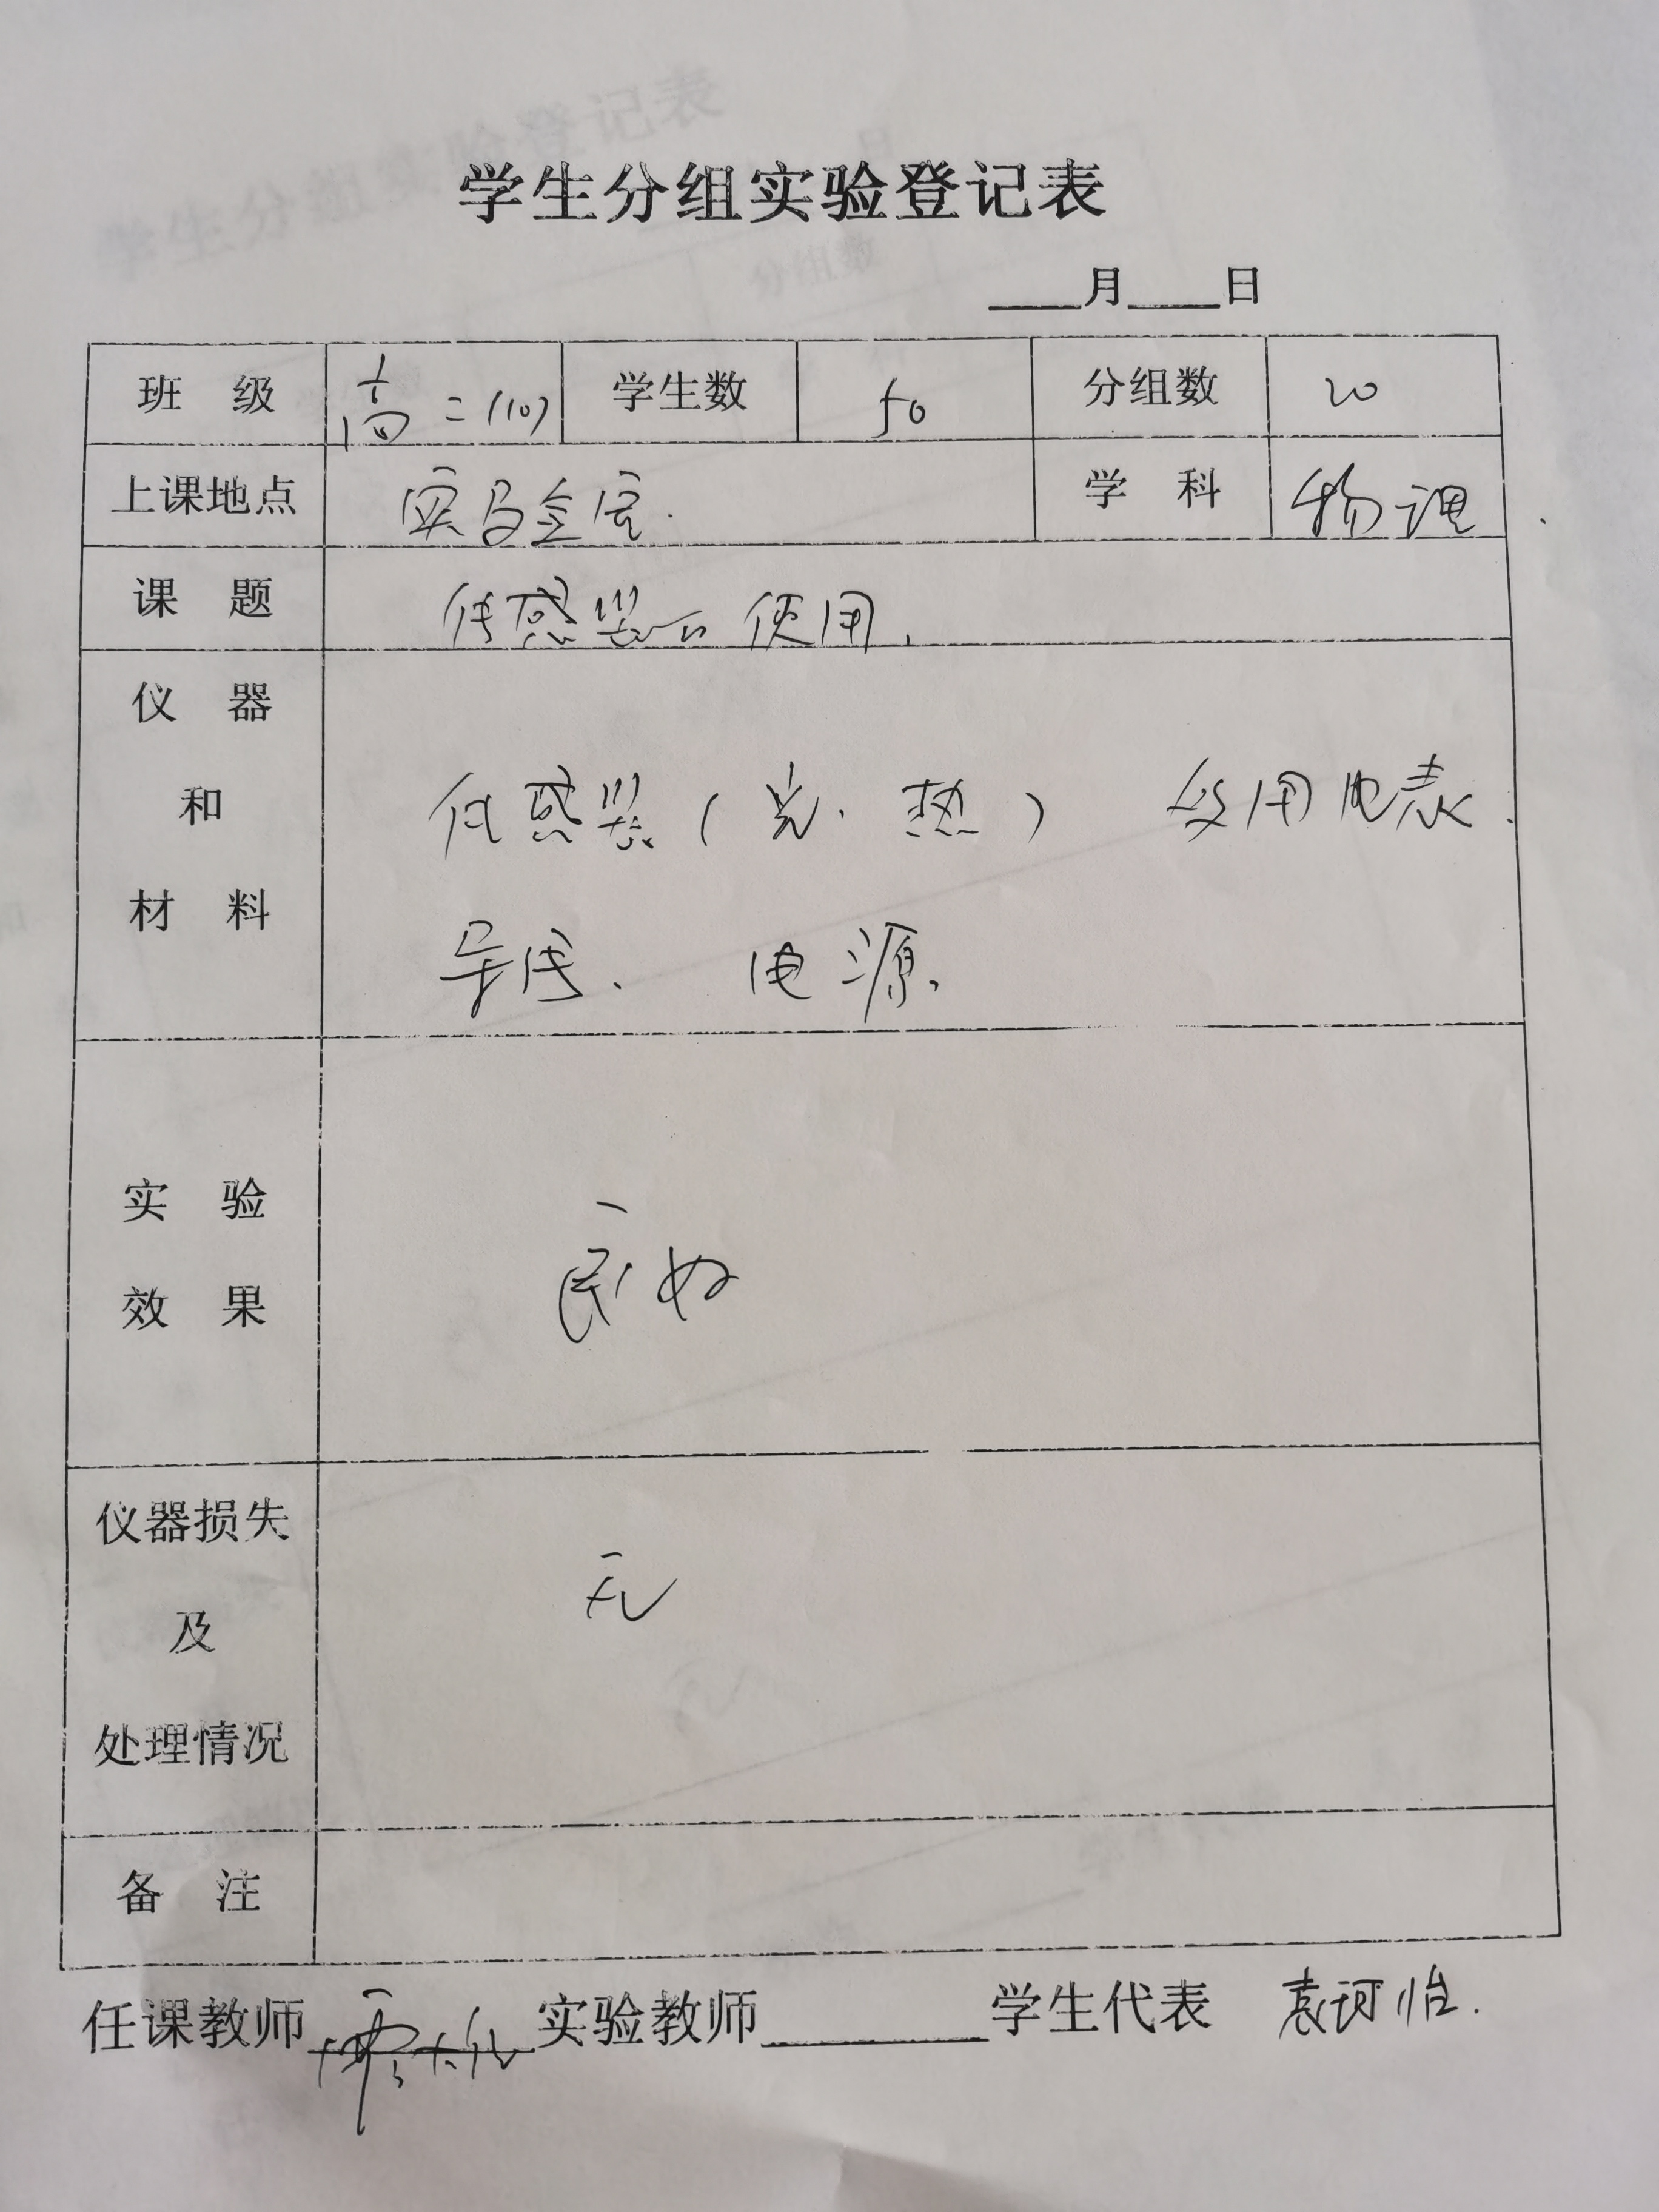 学生分组实验登记表
____月____日
班 级 高二(10) 学生数 50 分组数 20
上课地点 实验室. 学 科 物理.
课 题 传感器的使用.
仪 器
和
材 料
传感器(光、热) 多用电表.
导线、 电源.
实 验
效 果
良好
仪器损失
及
处理情况
无
备 注
任课教师 实验教师________学生代表 袁诃怡.